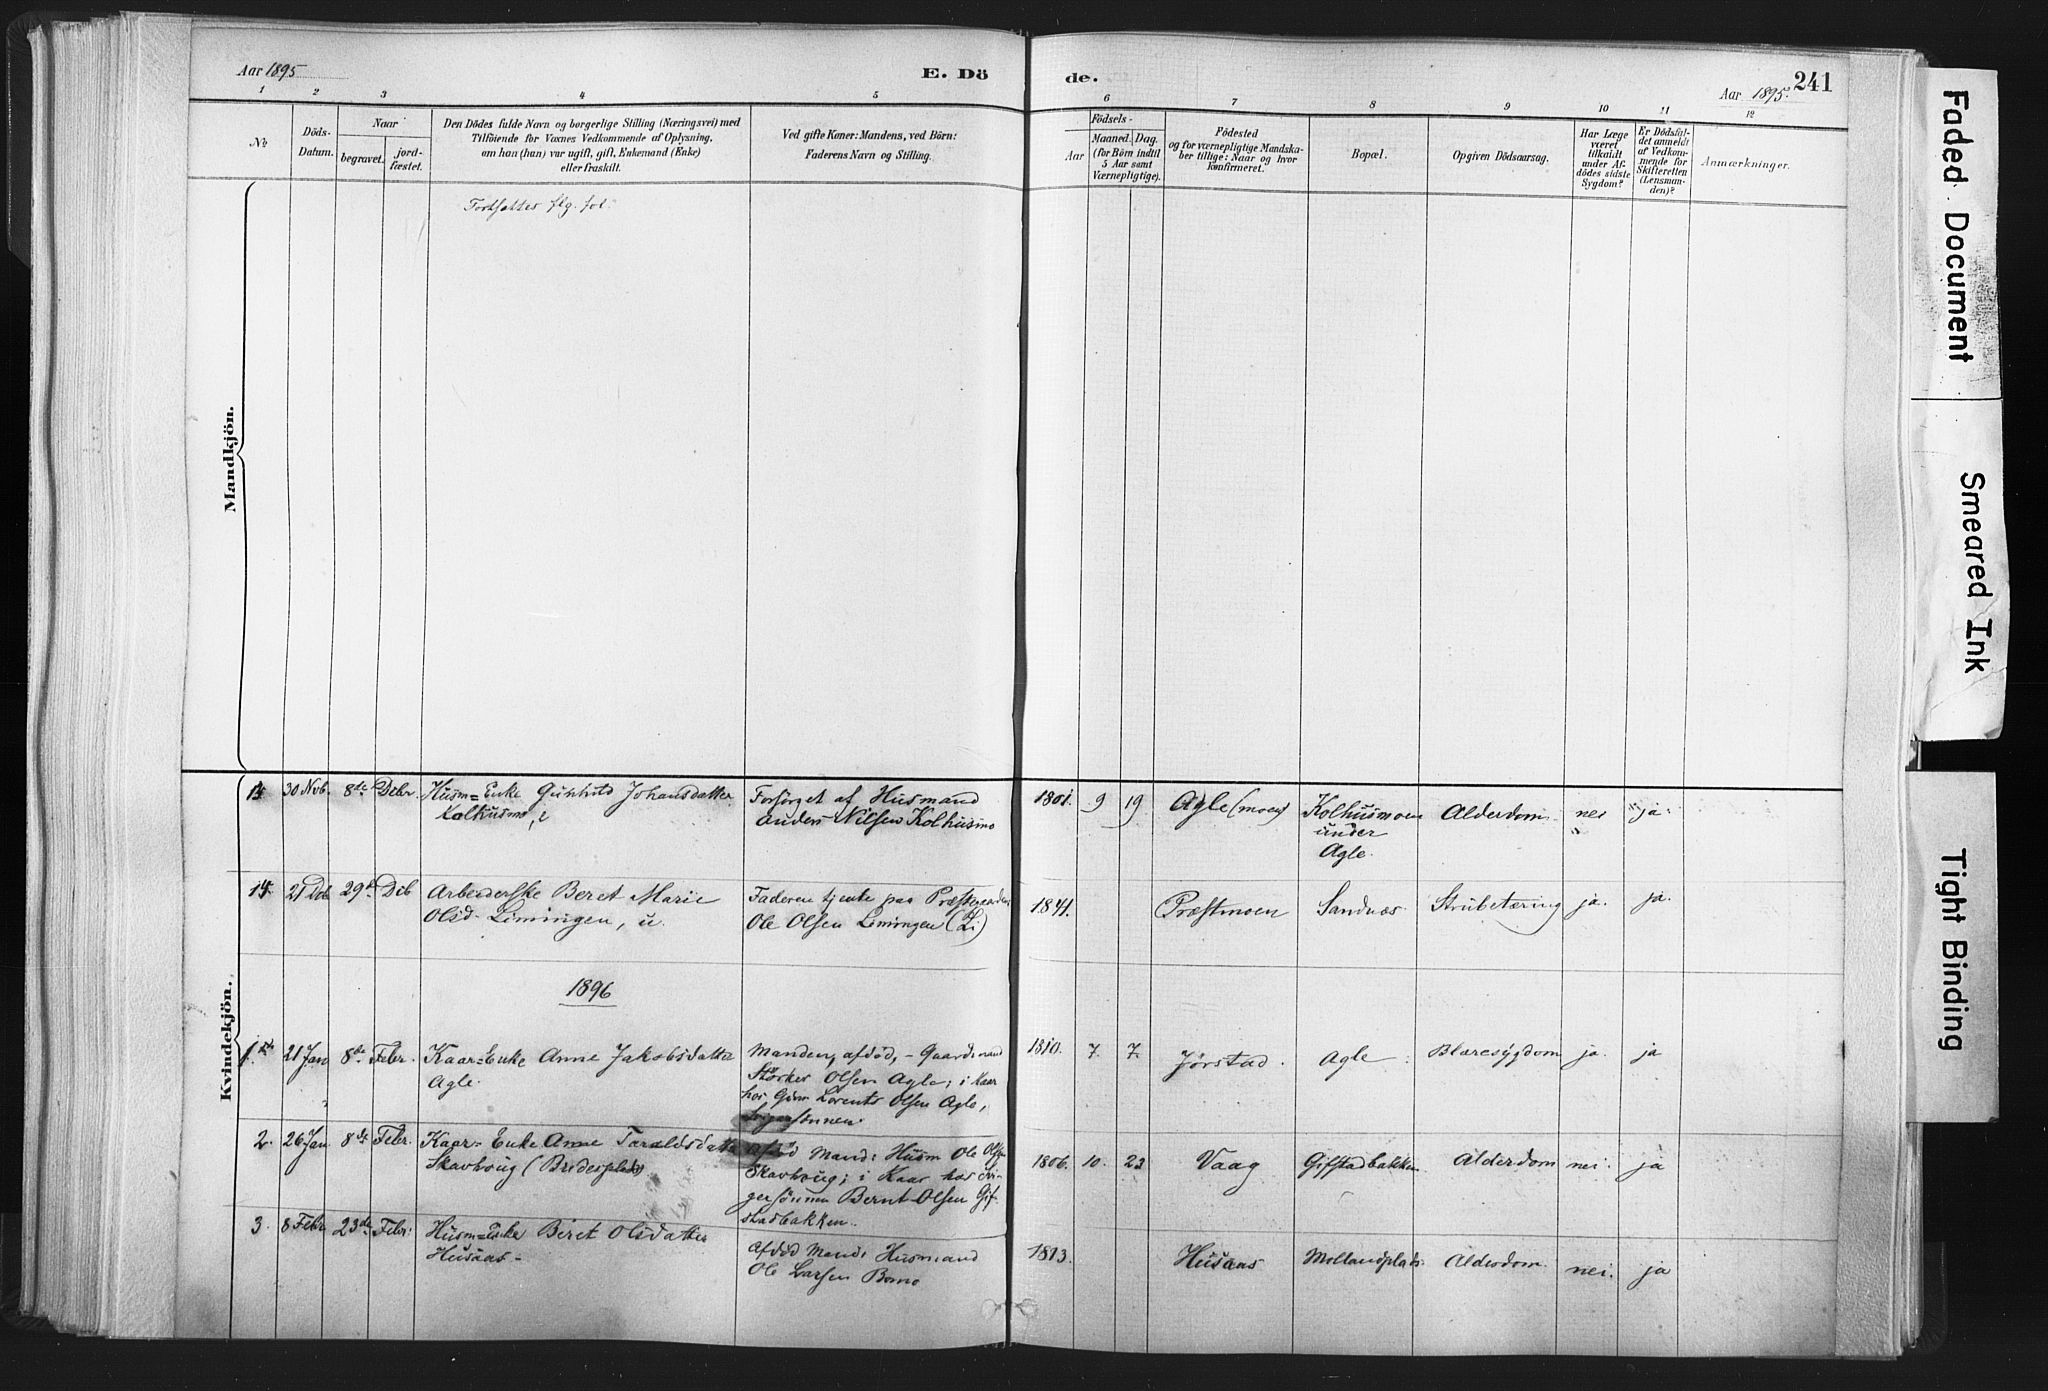 Aar 1895
E. Dö
de.
Aar 1895.
241
1 2 3 4 5 6 7 8 9 10 11 12
No
Döds-
Datum.
Naar
begravet.
jord-
fæstet.
Den Dödes fulde Navn og borgerlige Stilling (Næringsvei) med
Tilföiende for Voxnes Vedkommende af Oplysning,
om han (hun) var ugift, gift, Enkemand (Enke)
eller fraskilt.
Ved gifte Koner: Mandens, ved Börn:
Faderens Navn og Stilling.
Födsels-
Aar
Maaned. Dag.
(for Börn indtil
5 Aar samt
Værnepligtige).
Födested
og for værnepligtige Mandska-
ber tillige: Naar og hvor
konfirmeret.
Bopæl.
Opgiven Dödsaarsag.
Har Læge
været
tilkaldt
under Af-
dödes sidste
Sygdom?
Er Dödsfal-
det anmeldt
af Vedkom-
mende for
Skifteretten
(Lensman-
den)?
Anmærkninger.
Fortsættes flg. fol.
Mandkjön.
Kvindekjön.
30 Nvb. 8de Debr. Husm=Enke Johansdatter
Kolhusmo, e
Forsörget af Husmand
Anders Nilsen Kolhusmo
1801. 9 19 Agle (moen) Kolhusmoen
under
Agle.
Alderdom nei ja.
21 Deb 29de Deb Arbeiderske Beret Marie
Olsd. Limingen, u.
Faderen tjente paa Præstegaarden
Ole Olsen Limingen (Li)
1841. Præstmoen Sandnæs Strubetæring ja. ja.
1896
1. 21 Jan 8de Febr. Kaar=Enke Anne Jakobsdatter
Agle.
Manden, afdöd, - Gaardmand
Störker Olsen Agle; i Kaar
hos Gbr. Lorents Olsen Agle,
Svigersönnen.
1810. 7. 7. Jörstad. Agle Blæresygdom ja. ja
2. 26 Jan 8de Febr. Kaar=Enke Anne Taraldsdatter
Skavhoug (Bredesplads)
Afdöd Mand: Husm Ole Olsen
Skavhoug; i Kaar hos Svi-
gersönnen Bernt Olsen Gif-
stadbakken.
1806. 10. 23 Vaag Gifstadbakken Alderdom nei. ja
3. 8 Febr 23de Febr: Husm=Enke Beret Olsdatter
Husaas-
Afdöd Mand: Husmand
Ole Larsen Bomo
1813. Husaas Mollandplads. Alderdom. nei. ja
Faded Document
Smeared Ink
Tight Binding